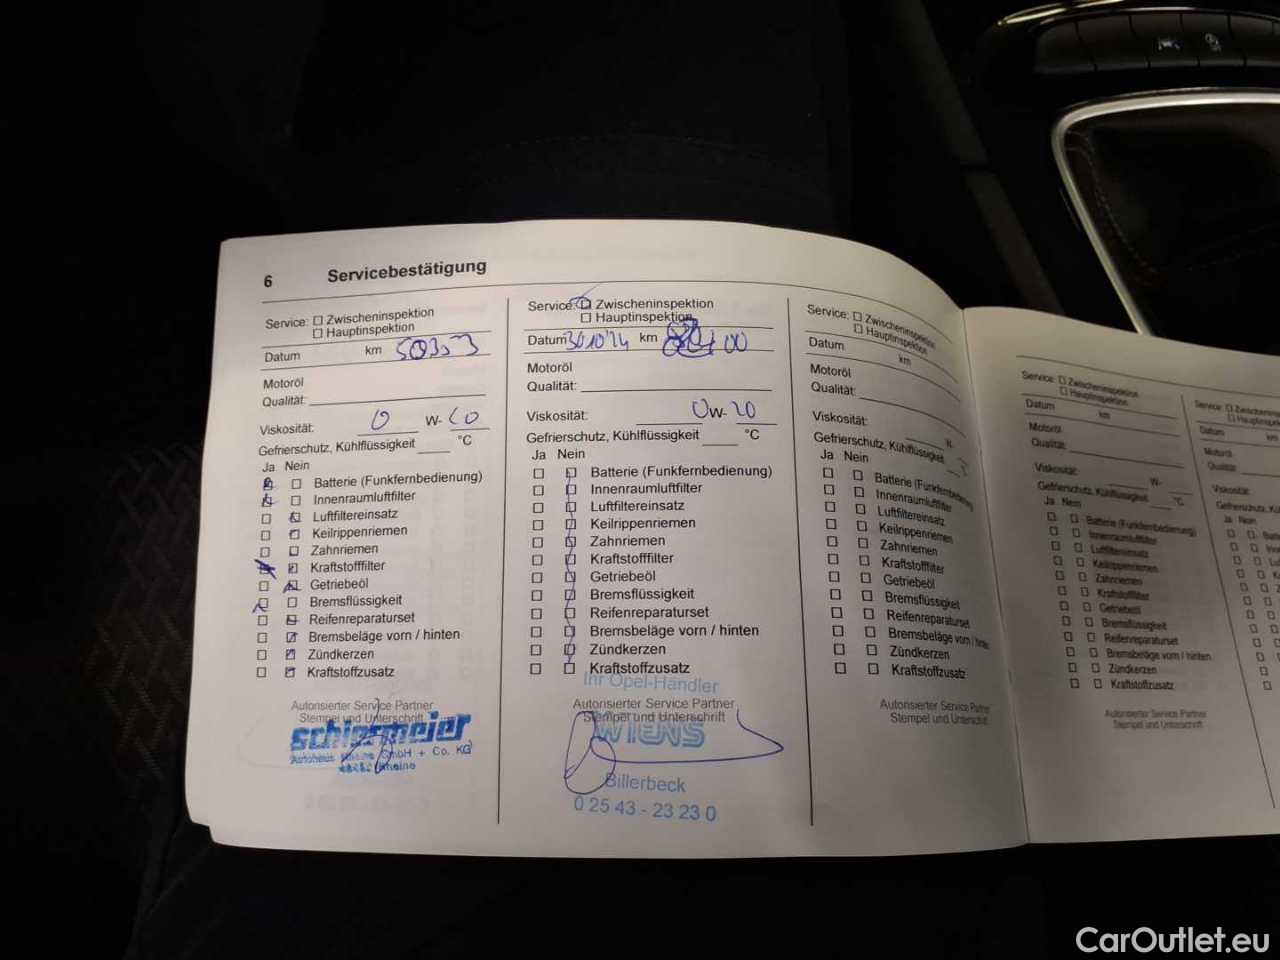 6 Servicebestätigung
Service: Zwischeninspektion
Hauptinspektion
Datum km 50353
Motoröl
Qualität:
Viskosität: 0 W-
Gefrierschutz, Kühlflüssigkeit °C
Ja Nein
Batterie (Funkfernbedienung)
Innenraumluftfilter
Luftfiltereinsatz
Keilrippenriemen
Zahnriemen
Kraftstofffilter
Getriebeöl
Bremsflüssigkeit
Reifenreparaturset
Bremsbeläge vorn / hinten
Zündkerzen
Kraftstoffzusatz
Autorisierter Service Partner
Stempel und Unterschrift
schiermeier
Autohaus Rheine GmbH + Co. KG
Rheine
Service: Zwischeninspektion
Hauptinspektion
Datum 30.10.24 km
Motoröl
Qualität:
Viskosität: 0W-20
Gefrierschutz, Kühlflüssigkeit °C
Ja Nein
Batterie (Funkfernbedienung)
Innenraumluftfilter
Luftfiltereinsatz
Keilrippenriemen
Zahnriemen
Kraftstofffilter
Getriebeöl
Bremsflüssigkeit
Reifenreparaturset
Bremsbeläge vorn / hinten
Zündkerzen
Kraftstoffzusatz
Ihr Opel-Händler
Autorisierter Service Partner
Stempel und Unterschrift
WIENS
Billerbeck
0 25 43 - 23 23 0
Service: Zwischeninspektion
Hauptinspektion
Datum km
Motoröl
Qualität:
Viskosität: W-
Gefrierschutz, Kühlflüssigkeit
Ja Nein
Batterie (Funkfernbedienung)
Innenraumluftfilter
Luftfiltereinsatz
Keilrippenriemen
Zahnriemen
Kraftstofffilter
Getriebeöl
Bremsflüssigkeit
Reifenreparaturset
Bremsbeläge vorn / hinten
Zündkerzen
Kraftstoffzusatz
Autorisierter Service Partner
Stempel und Unterschrift
Service: Zwischeninspektion
Hauptinspektion
Datum km
Motoröl
Qualität:
Viskosität: W-
Gefrierschutz, Kühlflüssigkeit °C
Ja Nein
Batterie (Funkfernbedienung)
Innenraumluftfilter
Luftfiltereinsatz
Keilrippenriemen
Zahnriemen
Kraftstofffilter
Getriebeöl
Bremsflüssigkeit
Reifenreparaturset
Bremsbeläge vorn / hinten
Zündkerzen
Kraftstoffzusatz
Autorisierter Service Partner
Stempel und Unterschrift
Service:
Datum
Motoröl
Qualität:
Viskosität:
Ja Nein
CarOutlet.eu